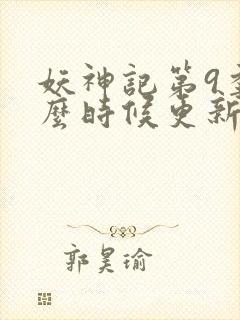 妖神記第9
麼時候更新
郭昊瑜